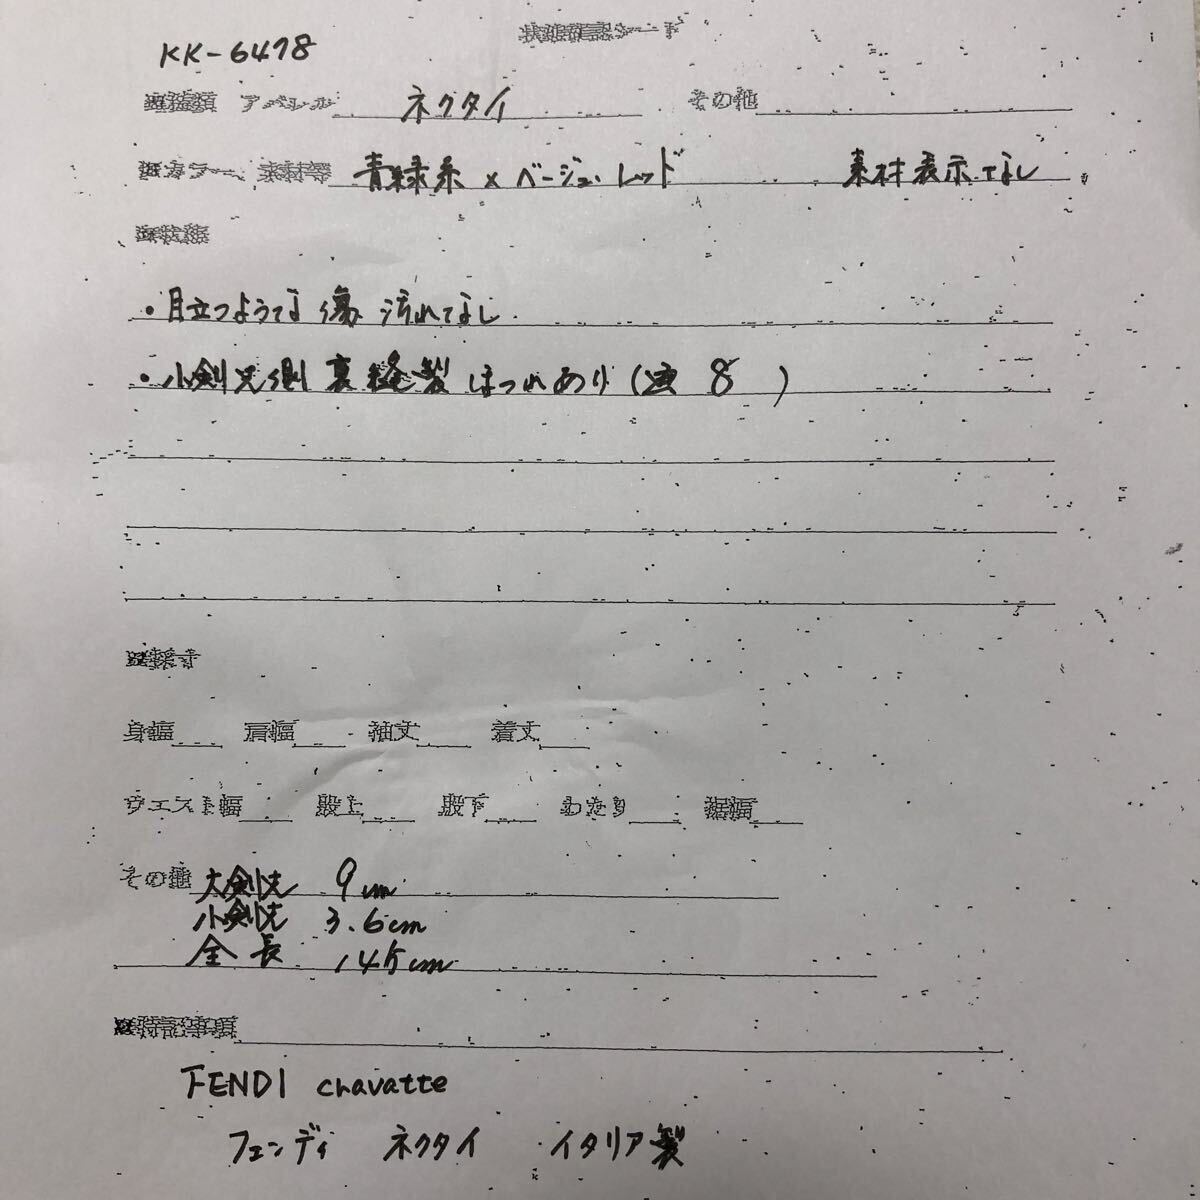 状態確認シート
KK-6478
アパレル ネクタイ その他
カラー、素材等 青緑系×ベージュ、レッド 素材表示なし
状態
・目立つような傷汚れなし
・小剣先側 裏縫製ほつれあり(画 8 )
採寸
身幅 肩幅 袖丈 着丈
ウエスト幅 股上 股下 わたり 裾幅
その他 大剣先 9cm
小剣先 3.6cm
全長 145cm
特記事項
FENDI cravatte
フェンディ ネクタイ イタリア製